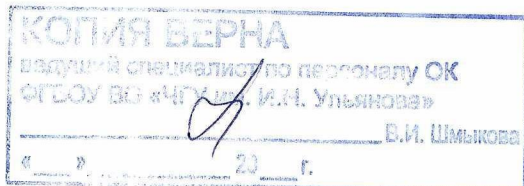 КОПИЯ ВЕРНА
ведущий специалист по персоналу ОК
ФГБОУ ВО «ЧГУ им. И.Н. Ульянова»
В.И. Шмыкова
« » 20 г.